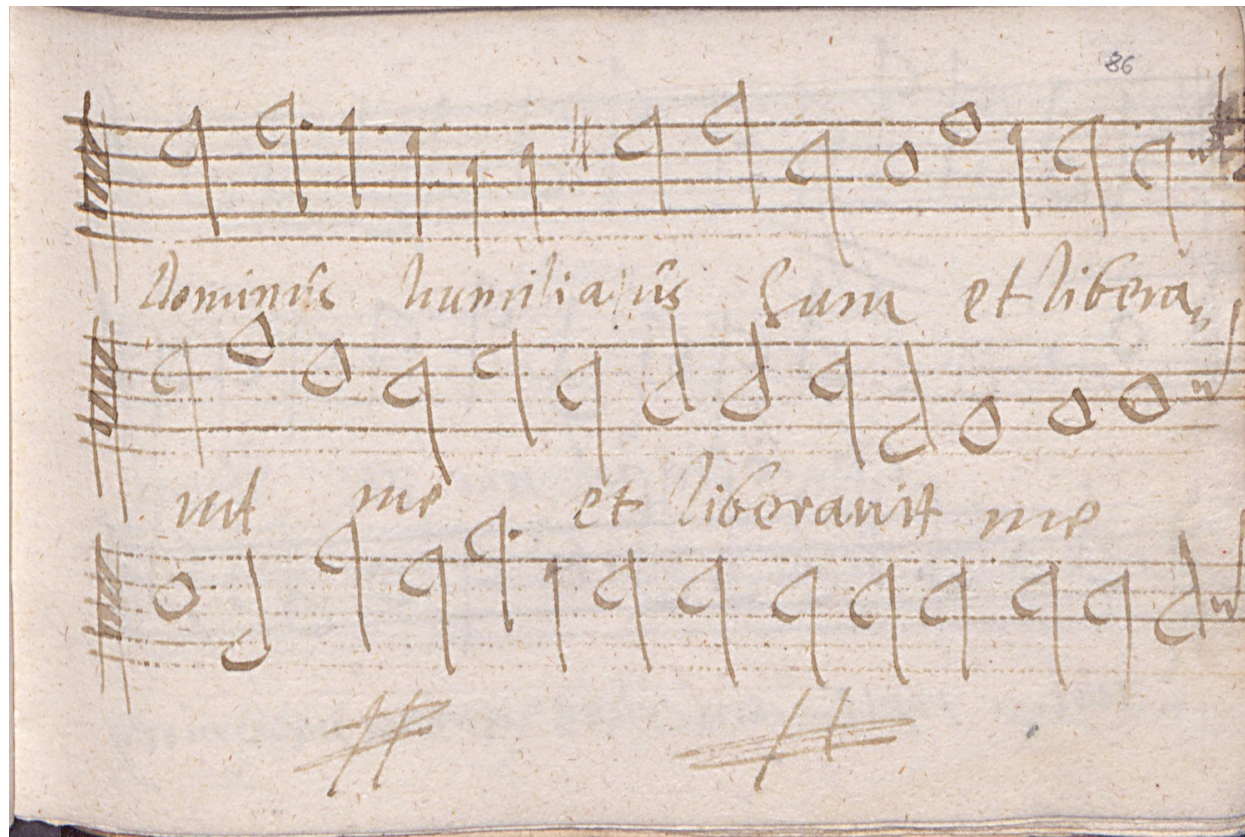 86
Dominus humiliatus sum et libera
uit me et liberauit me